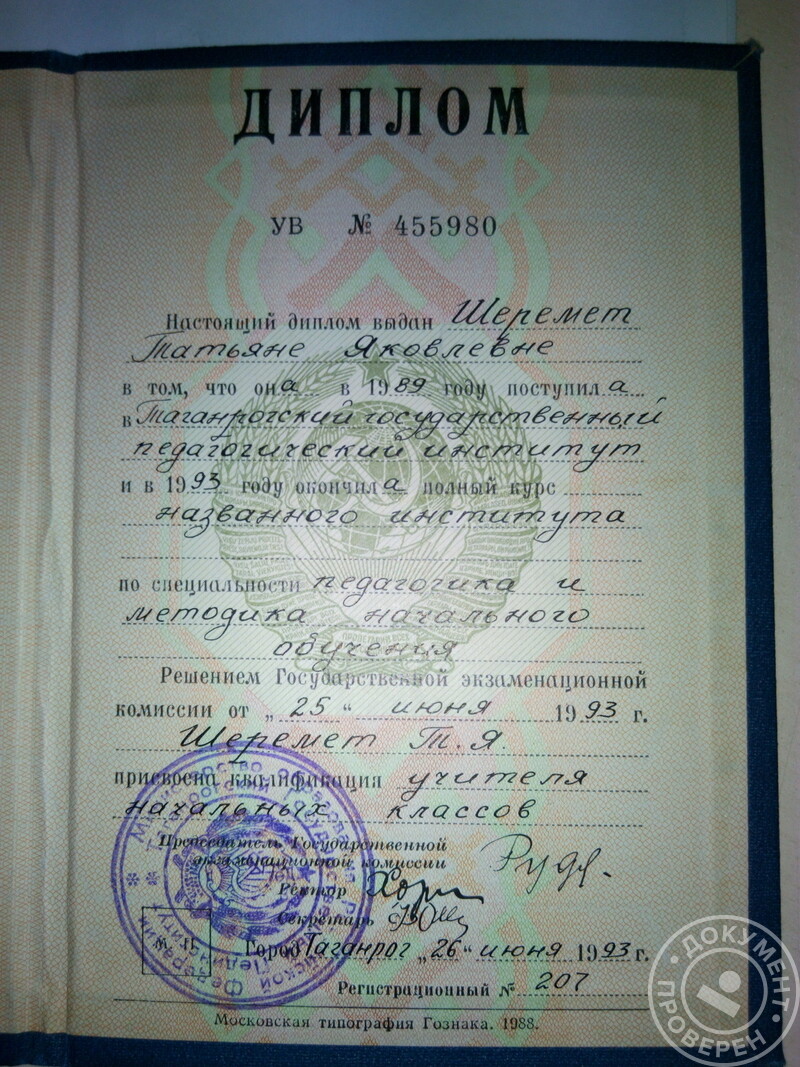 ДИПЛОМ
УВ № 455980
Настоящий диплом выдан Шеремет
Татьяне Яковлевне
в том, что она в 1989 году поступила
в Таганрогский государственный
педагогический институт
и в 1993 году окончила полный курс
названного института
по специальности педагогика и
методика начального
обучения
Решением Государственной экзаменационной
комиссии от „25“ июня 1993 г.
Шеремет Т. Я.
присвоена квалификация учителя
начальных классов
Председатель Государственной
экзаменационной комиссии
Ректор
Секретарь
Город Таганрог „26“ июня 1993 г.
Регистрационный № 207
Московская типография Гознака. 1988.
ДОКУМЕНТ
ПРОВЕРЕН